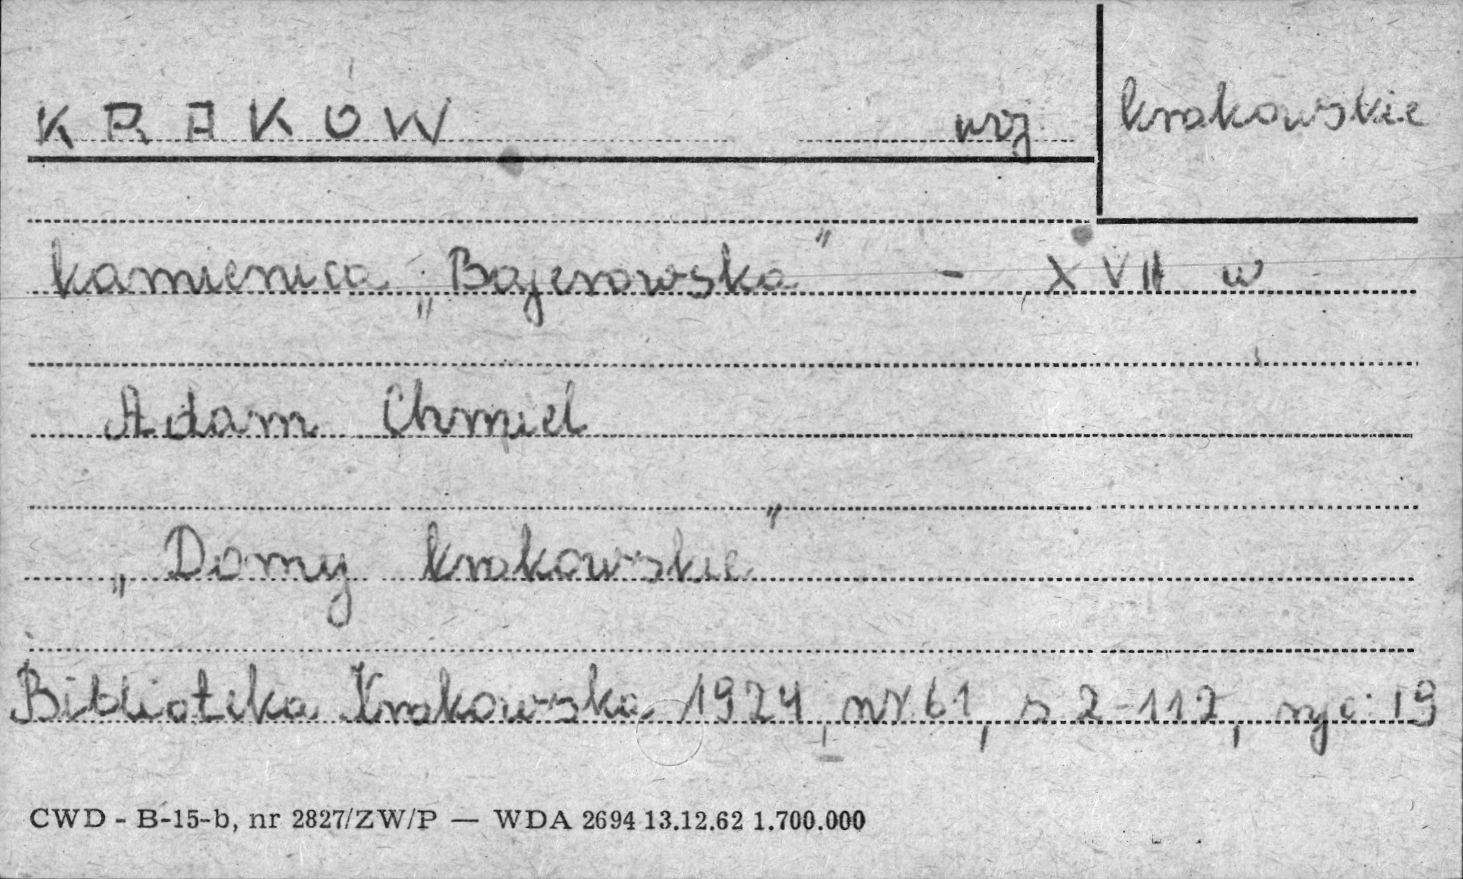 KRAKÓW woj. krakowskie
kamienica „Bajerowska” – XVII w.
Adam Chmiel
„Domy krakowskie”
Biblioteka Krakowska 1924, nr. 61, s 2-117, ryc. 19
CWD - B-15-b, nr 2827/ZW/P — WDA 2694 13.12.62 1.700.000